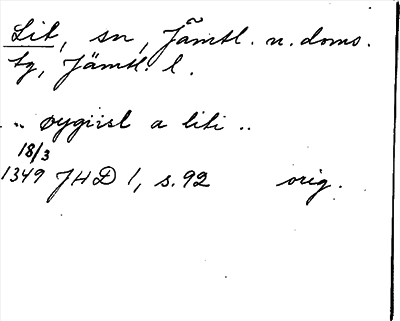 Lit, sn, Jämtl. n. doms.
tg, Jämtl. l.
.. øygirsl a liti ..
18/3
1349 JHD 1, s. 92 orig.